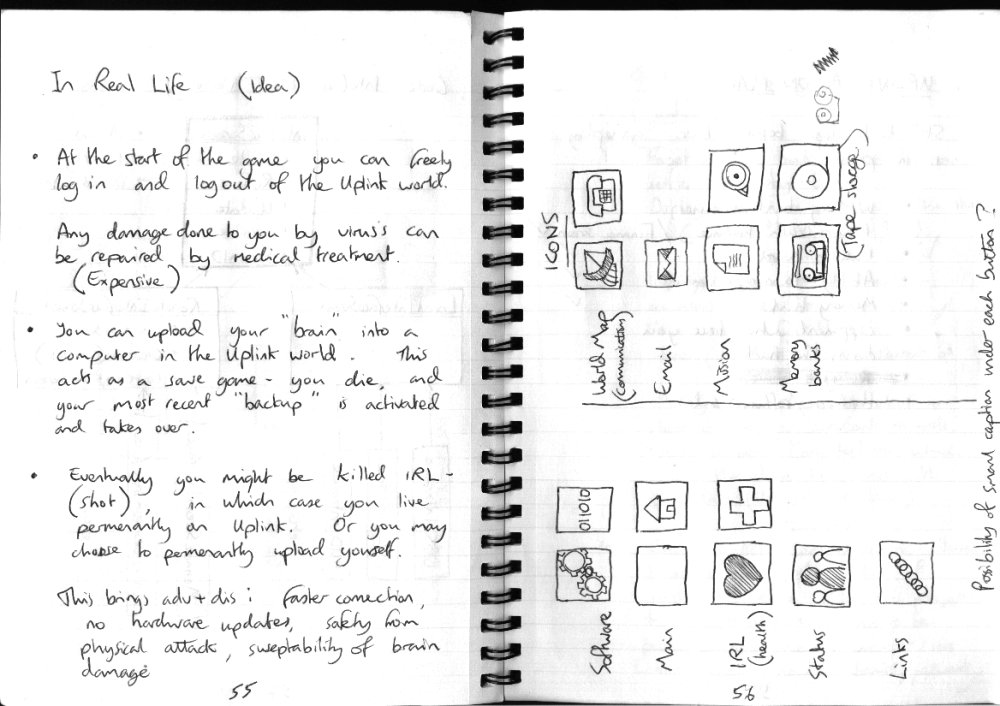 In Real Life (Idea)
• At the start of the game you can freely
log in and log out of the Uplink world.
Any damage done to you by virus's can
be repaired by medical treatment.
(Expensive)
• You can upload your "brain" into a
computer in the Uplink world. This
acts as a save game - you die, and
your most recent "backup" is activated
and takes over.
• Eventually you might be killed IRL -
(shot), in which case you live
permenantly on Uplink. Or you may
choose to permenantly upload yourself.
This brings adv + dis : Faster connection,
no hardware updates, safety from
physical attack, sweptability of brain
damage
55
ICONS
World Map
(communications)
Email
Mission
Memory
banks
(Tape storage)
Software
011010
Main
IRL
(health)
Status
Links
Possibility of small caption under each button?
56